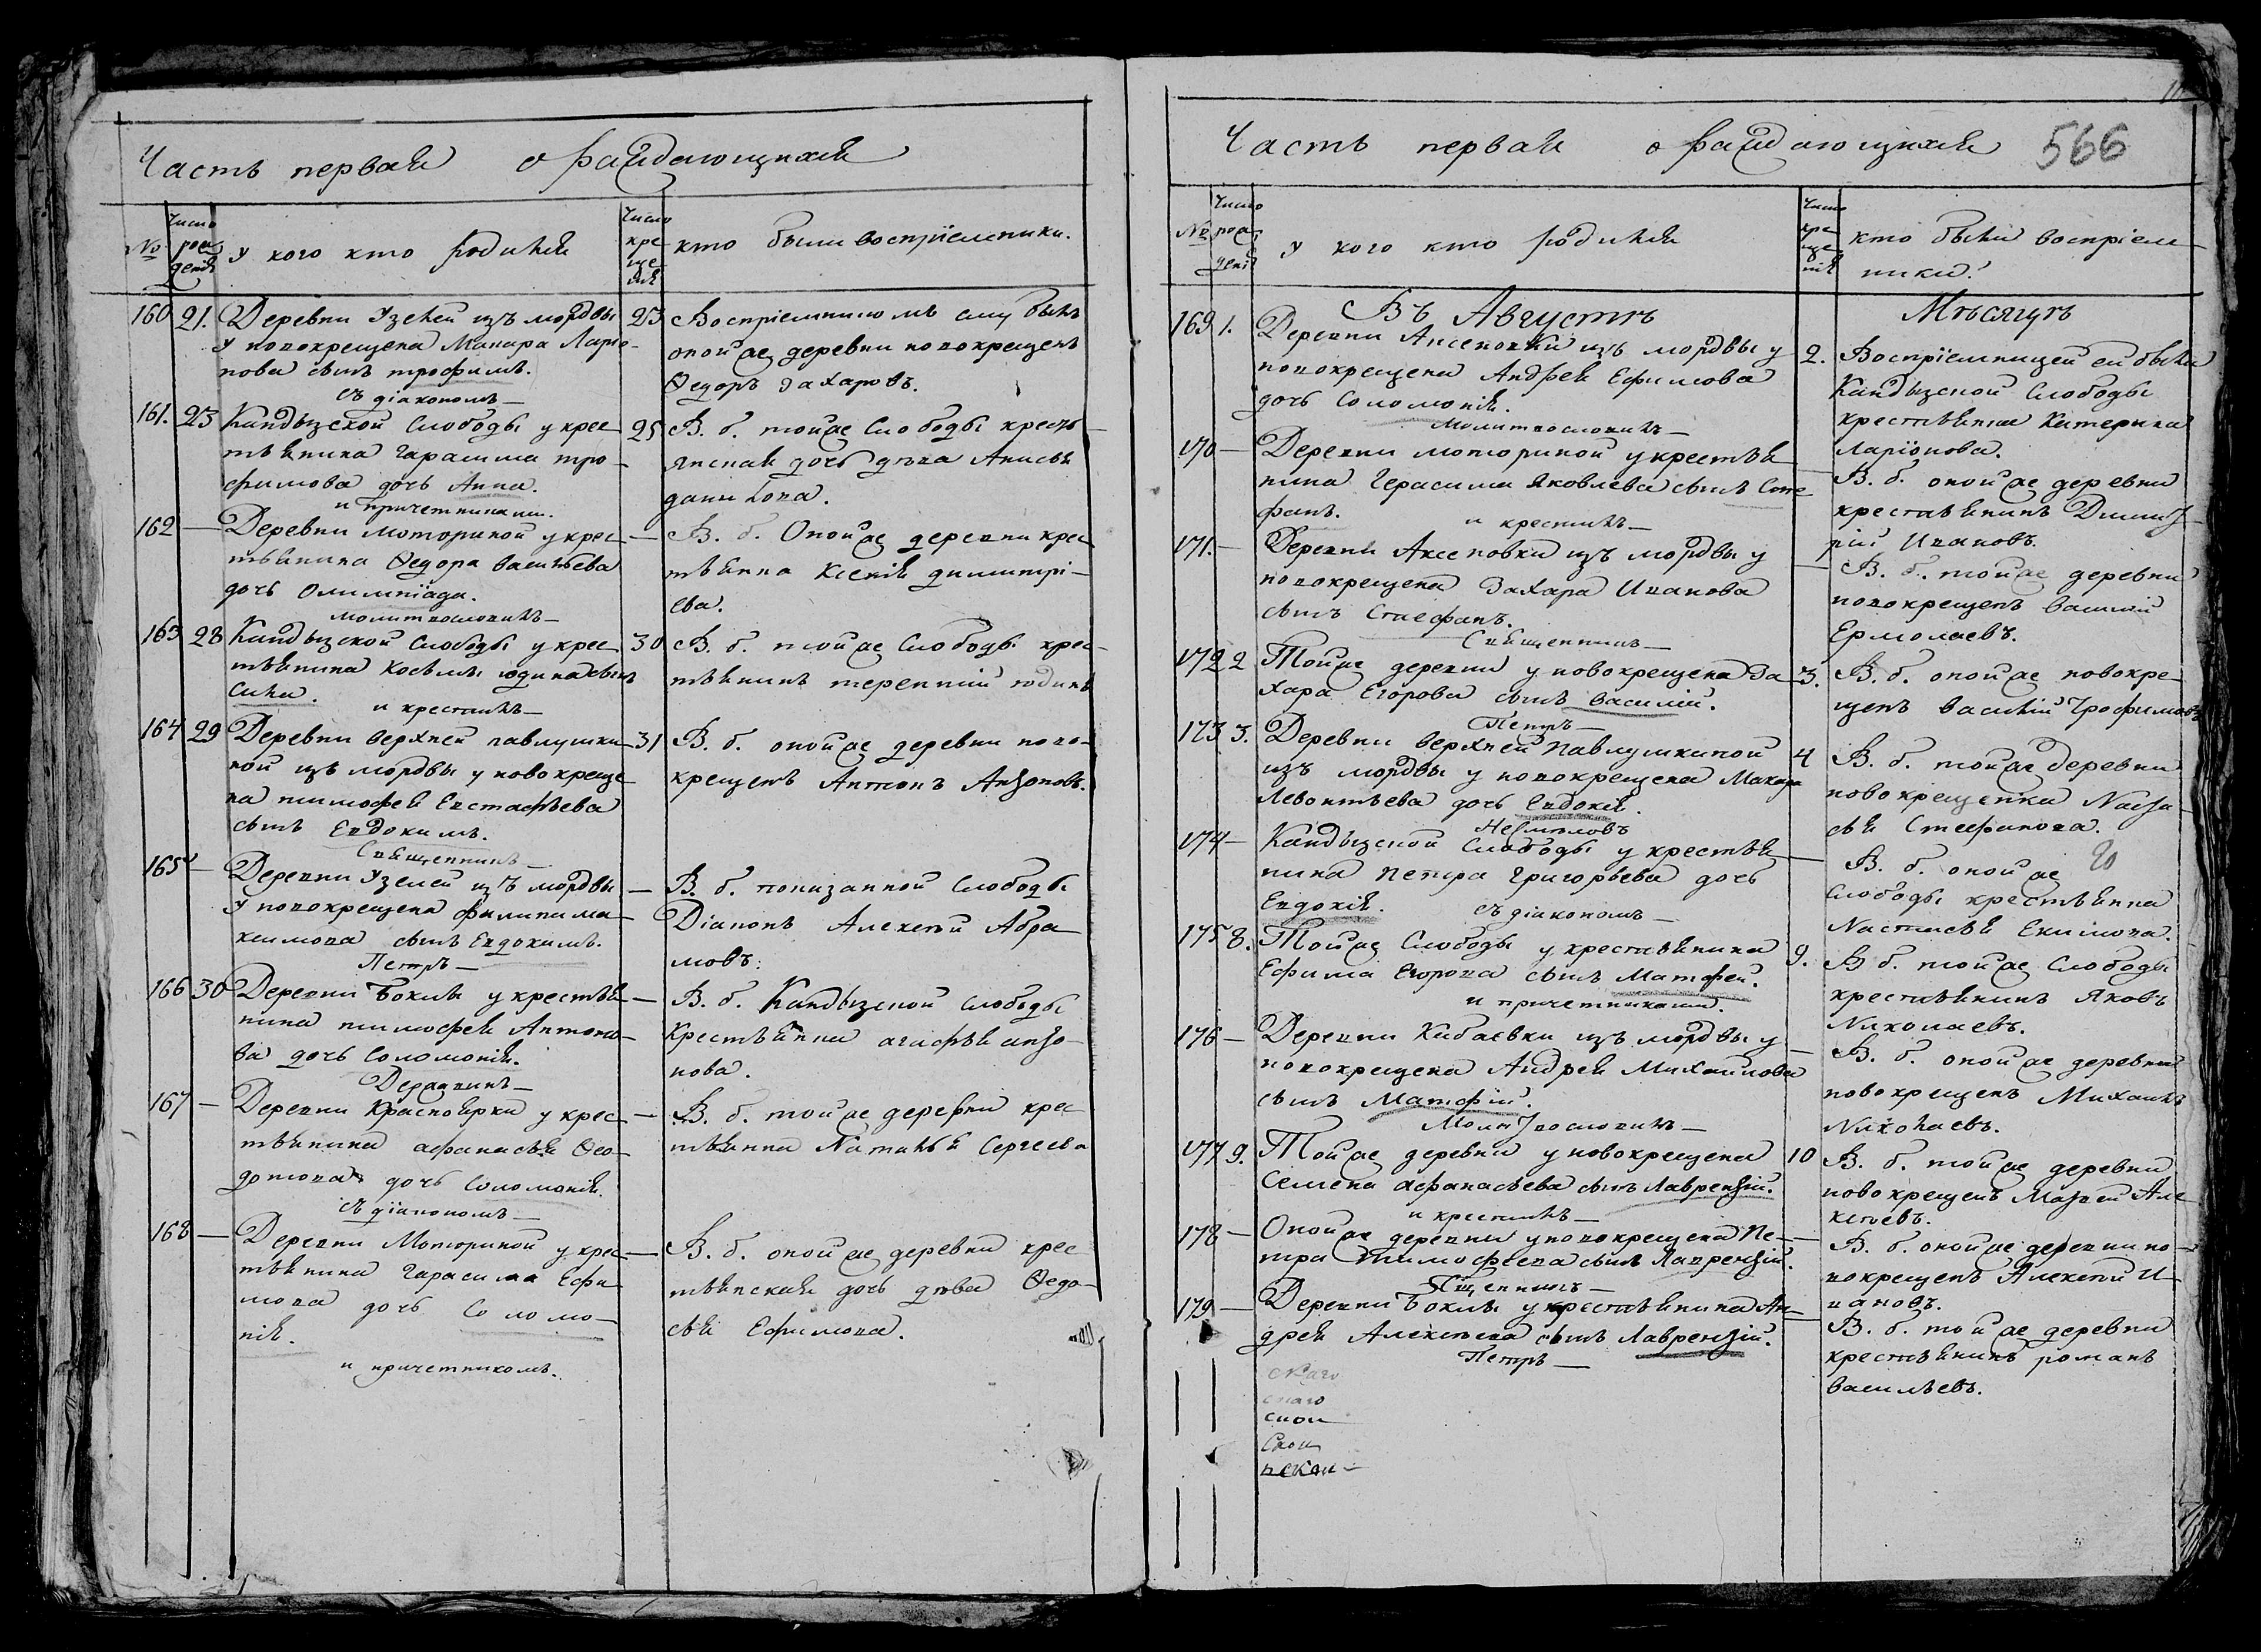 Часть первая о раждающихся
№
Число рождения
у кого кто родился
Число крещения
кто были воспріемники.
160 21. Деревни Узелей изъ мордвы
у новокрещена Макара Ларіо-
нова сынъ трофимъ.
съ діакономъ —
23 Воспріемникомъ ему былъ
оной же деревни новокрещенъ
Ѳедоръ Захаровъ.
161. 23 Кандызской Слободы у крес-
тьянина Гарасима тро-
фимова дочь Анна.
и причетниками.
25 В. б. той же Слободы кресть-
янская дочь дѣвка Анисья
данилова.
162 — Деревни Моториной у крес-
тьянина Ѳедора васильева
дочь Олимпіада.
молитвословилъ —
— В. б. Оной же деревни крес
тьянка Ксенія димитрі-
ева.
163 28 Кандызской Слободы у крес-
тьянина Косьмы юдина сынъ
Сила.
и крестилъ —
30 В. б. той же Слободы крес-
тьянинъ терентій юдинъ
164 29 Деревни верхней павлушки-
ной изъ мордвы у новокреще
на тимофея Евстафьева
сынъ Евдокимъ.
Священникъ —
31 В. б. оной же деревни ново-
крещенъ Антонъ Антоновъ.
165 — Деревни Узелей изъ мордвы
у новокрещена филипа ма-
ксимова сынъ Евдокимъ.
Петръ —
— В. б. показанной Слободы
Діаконъ Алексѣй Абра
мовъ.
166 30 Деревни Боклы у крестья-
нина тимофея Антоно-
ва дочь Соломонія.
Державинъ —
— В. б. Кандызской слободы
Крестьянка агафья анто-
нова.
167 — Деревни Красноярки у крес-
тьянина афанасья Ѳео-
дотова дочь Соломонія.
съ діакономъ —
— В. б. той же деревни крес
тьянка Наталья Сергеева
168 — Деревни Моториной у крес-
тьянина Гарасима Ефи
мова дочь Соломо-
нія.
и причетникомъ.
— В. б. оной же деревни крес
тьянская дочь дѣвка Ѳедо-
сья Ефимова.
Часть первая о раждающихся 566
№
Число рожденія
у кого кто родился
Число крещенія
кто были воспріем-
ники.
Въ Августѣ Мѣсяцѣ
169 1. Деревни Аксеновки изъ мордвы у
новокрещена Андрея Ефимова
дочь Соломонія.
молитвословилъ —
2. Воспріемницей ей была
Кандызской Слободы
крестьянка Катерина
Ларіонова.
170 — Деревни моториной у крестья
нина Герасима Яковлева сынъ Сте
фанъ.
и крестилъ —
— В. б. оной же деревни
крестьянинъ Димит-
рій Ивановъ.
171. — Деревни Аксеновки изъ мордвы у
новокрещена Захара Иванова
сынъ Стефанъ.
Священникъ —
— В. б. той же деревни
новокрещенъ василій
Ермолаевъ.
172 2 Той же деревни у новокрещена За
хара Егорова сынъ василій.
Петръ —
3. В. б. оной же новокре-
щенъ василій Трофимовъ
173 3. Деревни верхней Павлушкиной
изъ мордвы у новокрещена Макара
Левонтьева дочь Евдокія.
4 В. б. той же деревни
новокрещенка
Стефанова.
174 — Кандызской Слободы у крестья
нина Петра Григорьева дочь
Евдокія.
съ діакономъ —
— В. б. оной же
Слободы крестьянка
Настасья Екимова.
175 8. Той же Слободы у крестьянина
Ефима Егорова сынъ Матфей.
и причетниками.
9. В. б. той же Слободы
крестьянинъ Яковъ
Николаевъ.
176 — Деревни Кабаевки изъ мордвы у
новокрещена Андрея Михайлова
сынъ Матфій.
Молитвословилъ —
— В. б. оной же деревни
новокрещенъ Михаилъ
Николаевъ.
177 9. Той же деревни у новокрещена
Семена Афанасьева сынъ Лаврентій.
и крестилъ —
10 В. б. той же деревни
новокрещенъ Матвей Але
ксѣевъ.
178 — Оной же деревни у новокрещена Пе-
тра Тимофеева сынъ Лаврентій.
Священникъ —
— В. б. оной же деревни но-
вокрещенъ Алексѣй И-
вановъ.
179. — Деревни Боклы у крестьянина Ан-
дрея Алексѣева сынъ Лаврентій.
Петръ —
— В. б. той же деревни
крестьянинъ романъ
васильевъ.